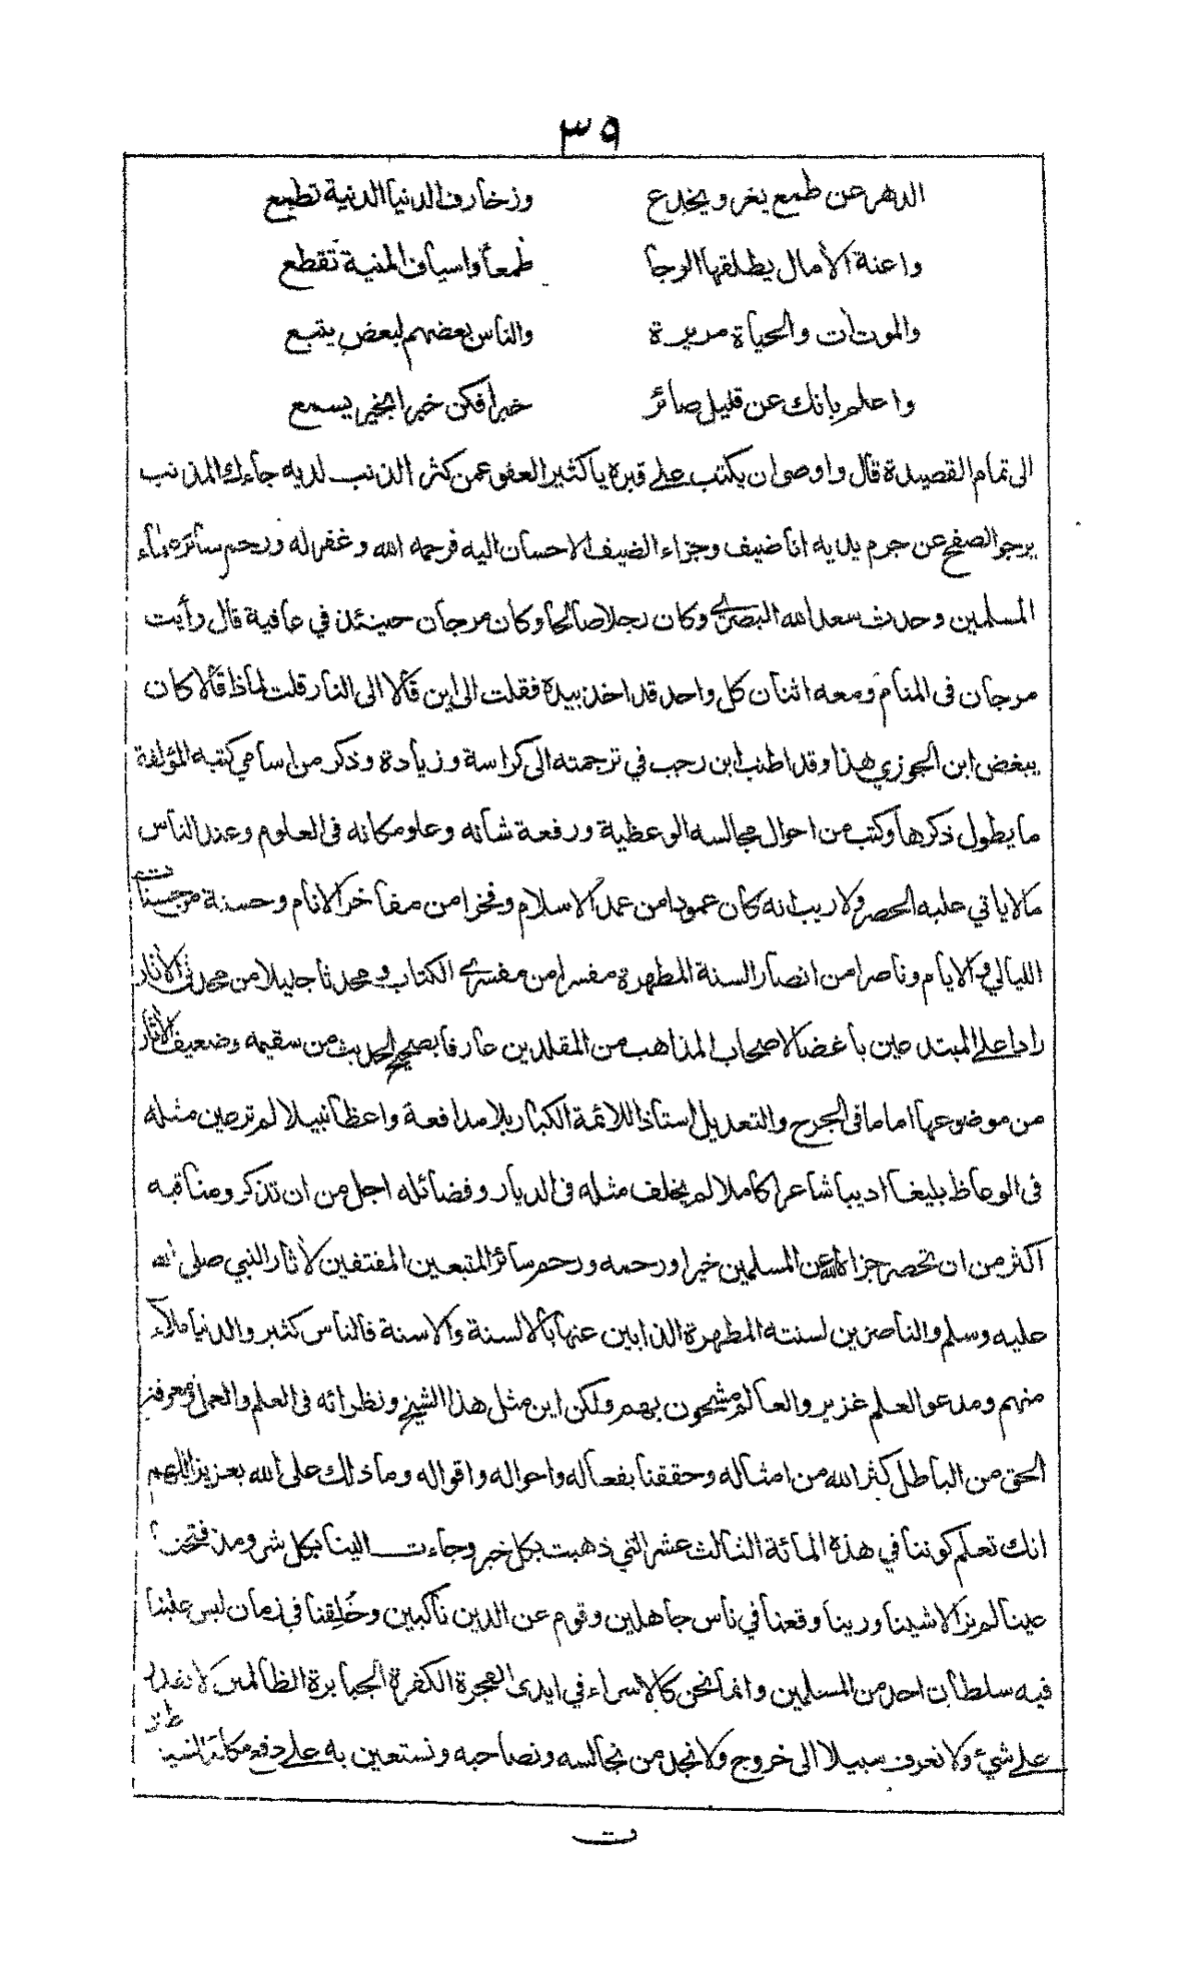 ٣٩
الدهر عن طمع يغر ويخدع وزخارف الدنيا الدنية تطمع
واعنة الأمال يطلقها الرجا طمعاً واسياف المنية تقطع
والموت ات والحياة مريرة والناس بعضهم لبعض يتبع
واعلم بأنك عن قليل صائر خبرا فكن خبرا بخير يسمع
الى تمام القصيدة قال واوصى ان يكتب على قبره يا كثير العفو عمن كثر الذنب لديه جاءك المذنب
يرجو الصفح عن جرم يديه انا ضيف وجزاء الضيف الاحسان اليه فرحمه الله وغفر له ورحم سائر علماء
المسلمين وحدث سعد الله البصرى وكان رجلا صالحا وكان مرجان حينئذ في عافية قال رأيت
مرجان فى المنام ومعه اثنان كل واحد قد اخذ بيده فقلت الى اين قالا الى النار قلت لماذا قالا كان
يبغض ابن الجوزي هذا وقد اطنب ابن رجب في ترجمته الى كراسة وزيادة وذكر من اسامي كتبه المؤلفة
ما يطول ذكرها وكتب من احوال مجالسه الوعظية ورفعة شانه وعلو مكانه فى العلوم وعند الناس
مالا ياتي عليه الحصر ولا ريب انه كان عمودا من عمد الاسلام وفخرا من مفاخر الانام وحسنة من حسنات
الليالي والايام وناصرا من انصار السنة المطهرة مفسرا من مفسرى الكتاب ومحدثا جليلا من محدثى الأثار
رادا على المبتدعين باغضا لاصحاب المذاهب من المقلدين عارفا بصحيح الحديث من سقيمه وضعيف الأثار
من موضوعها اماما فى الجرح والتعديل استاذا للائمة الكبار بلا مدافعة واعظا نبيلا لم تر عين مثله
فى الوعاظ بليغا اديبا شاعرا كاملا لم يخلف مثله فى الديار وفضائله اجل من ان تذكر ومناقبه
اكثر من ان تحصر جزاه الله عن المسلمين خيرا ورحمه ورحم سائر المتبعين المقتفين لأثار النبي صلى الله
عليه وسلم والناصرين لسنته المطهرة الذابين عنها بالالسنة والاسنة فالناس كثير والدنيا ملآء
منهم ومدعو العلم غزير والعالم مشحون بهم ولكن اين مثل هذا الشيخ ونظرائه فى العلم والعمل ومعرفة
الحق من الباطل كثر الله من امثاله وحققنا بفعاله واحواله واقواله وما ذلك على الله بعزيز اللهم
انك تعلم كوننا في هذه المائة الثالث عشر التي ذهبت بكل خير وجاءت الينا بكل شر ومذ فتحنا
عينا لم نر الا شينا ورينا وقعنا في ناس جاهلين وقوم عن الدين ناكبين وخُلِقنا في زمان ليس علينا
فيه سلطان احد من المسلمين وانما نحن كالاسراء في ايدى الفجرة الكفرة الجبابرة الظالمين لا نقدر
على شيء ولا نعرف سبيلا الى خروج ولا نجد من نجالسه ونصاحبه ونستعين به على دفع مكائد الشياطين
ت